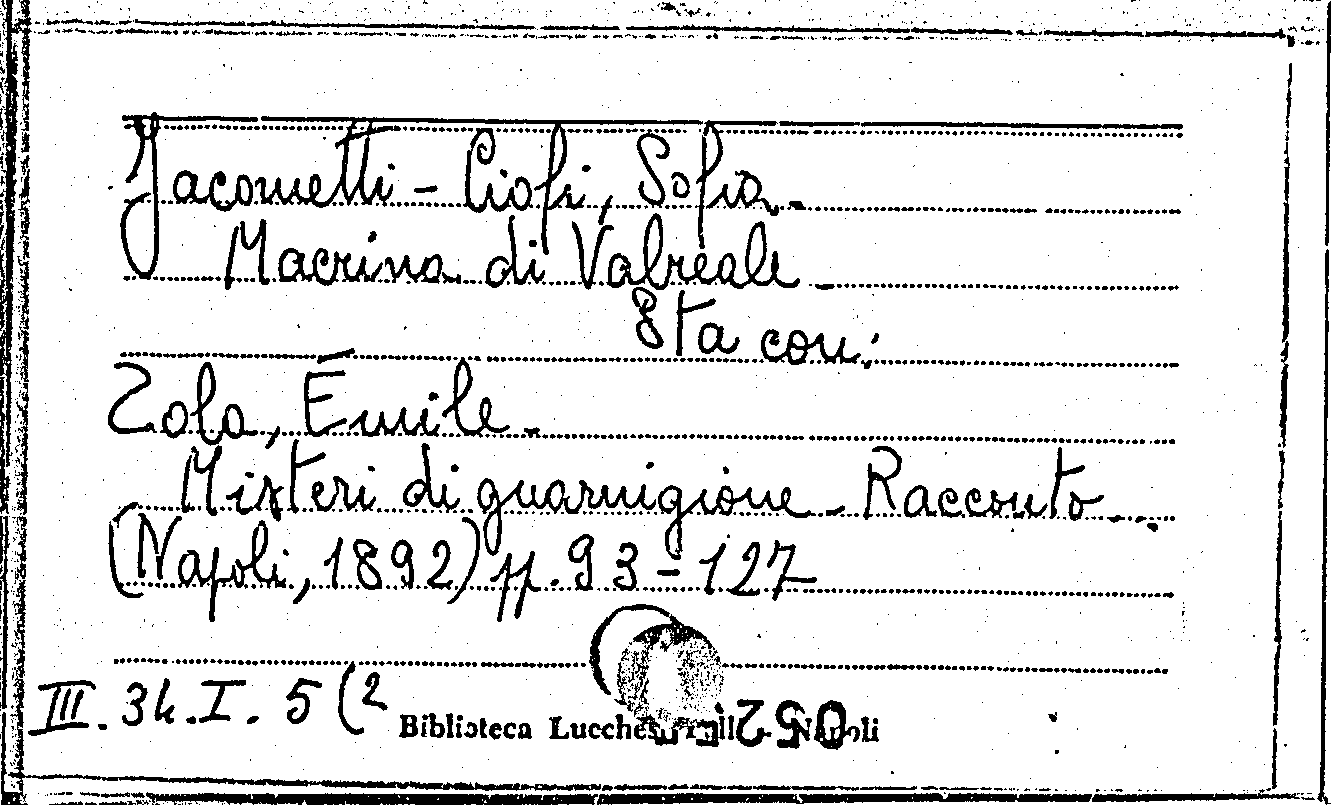 Jacometti - Ciofi, Sofia.
Macrina di Valreale -
Sta con:
Zola, Emile -
Misteri di guarnigione - Racconto -
(Napoli, 1892) pp. 93-127
III. 34. I. 5 (2
Biblioteca Lucchesi Palli - Napoli